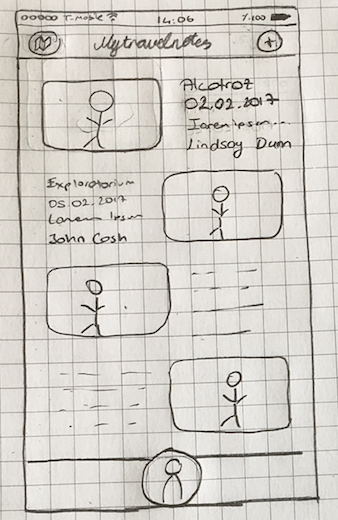 ooooo T-Mobile 14:06 %100
Mytravelnotes
+
Alcatraz
02.02.2017
Lorem ipsum...
Lindsay Dum
Exploratorium
05.02.2017
Lorem Ipsum
John Cosh